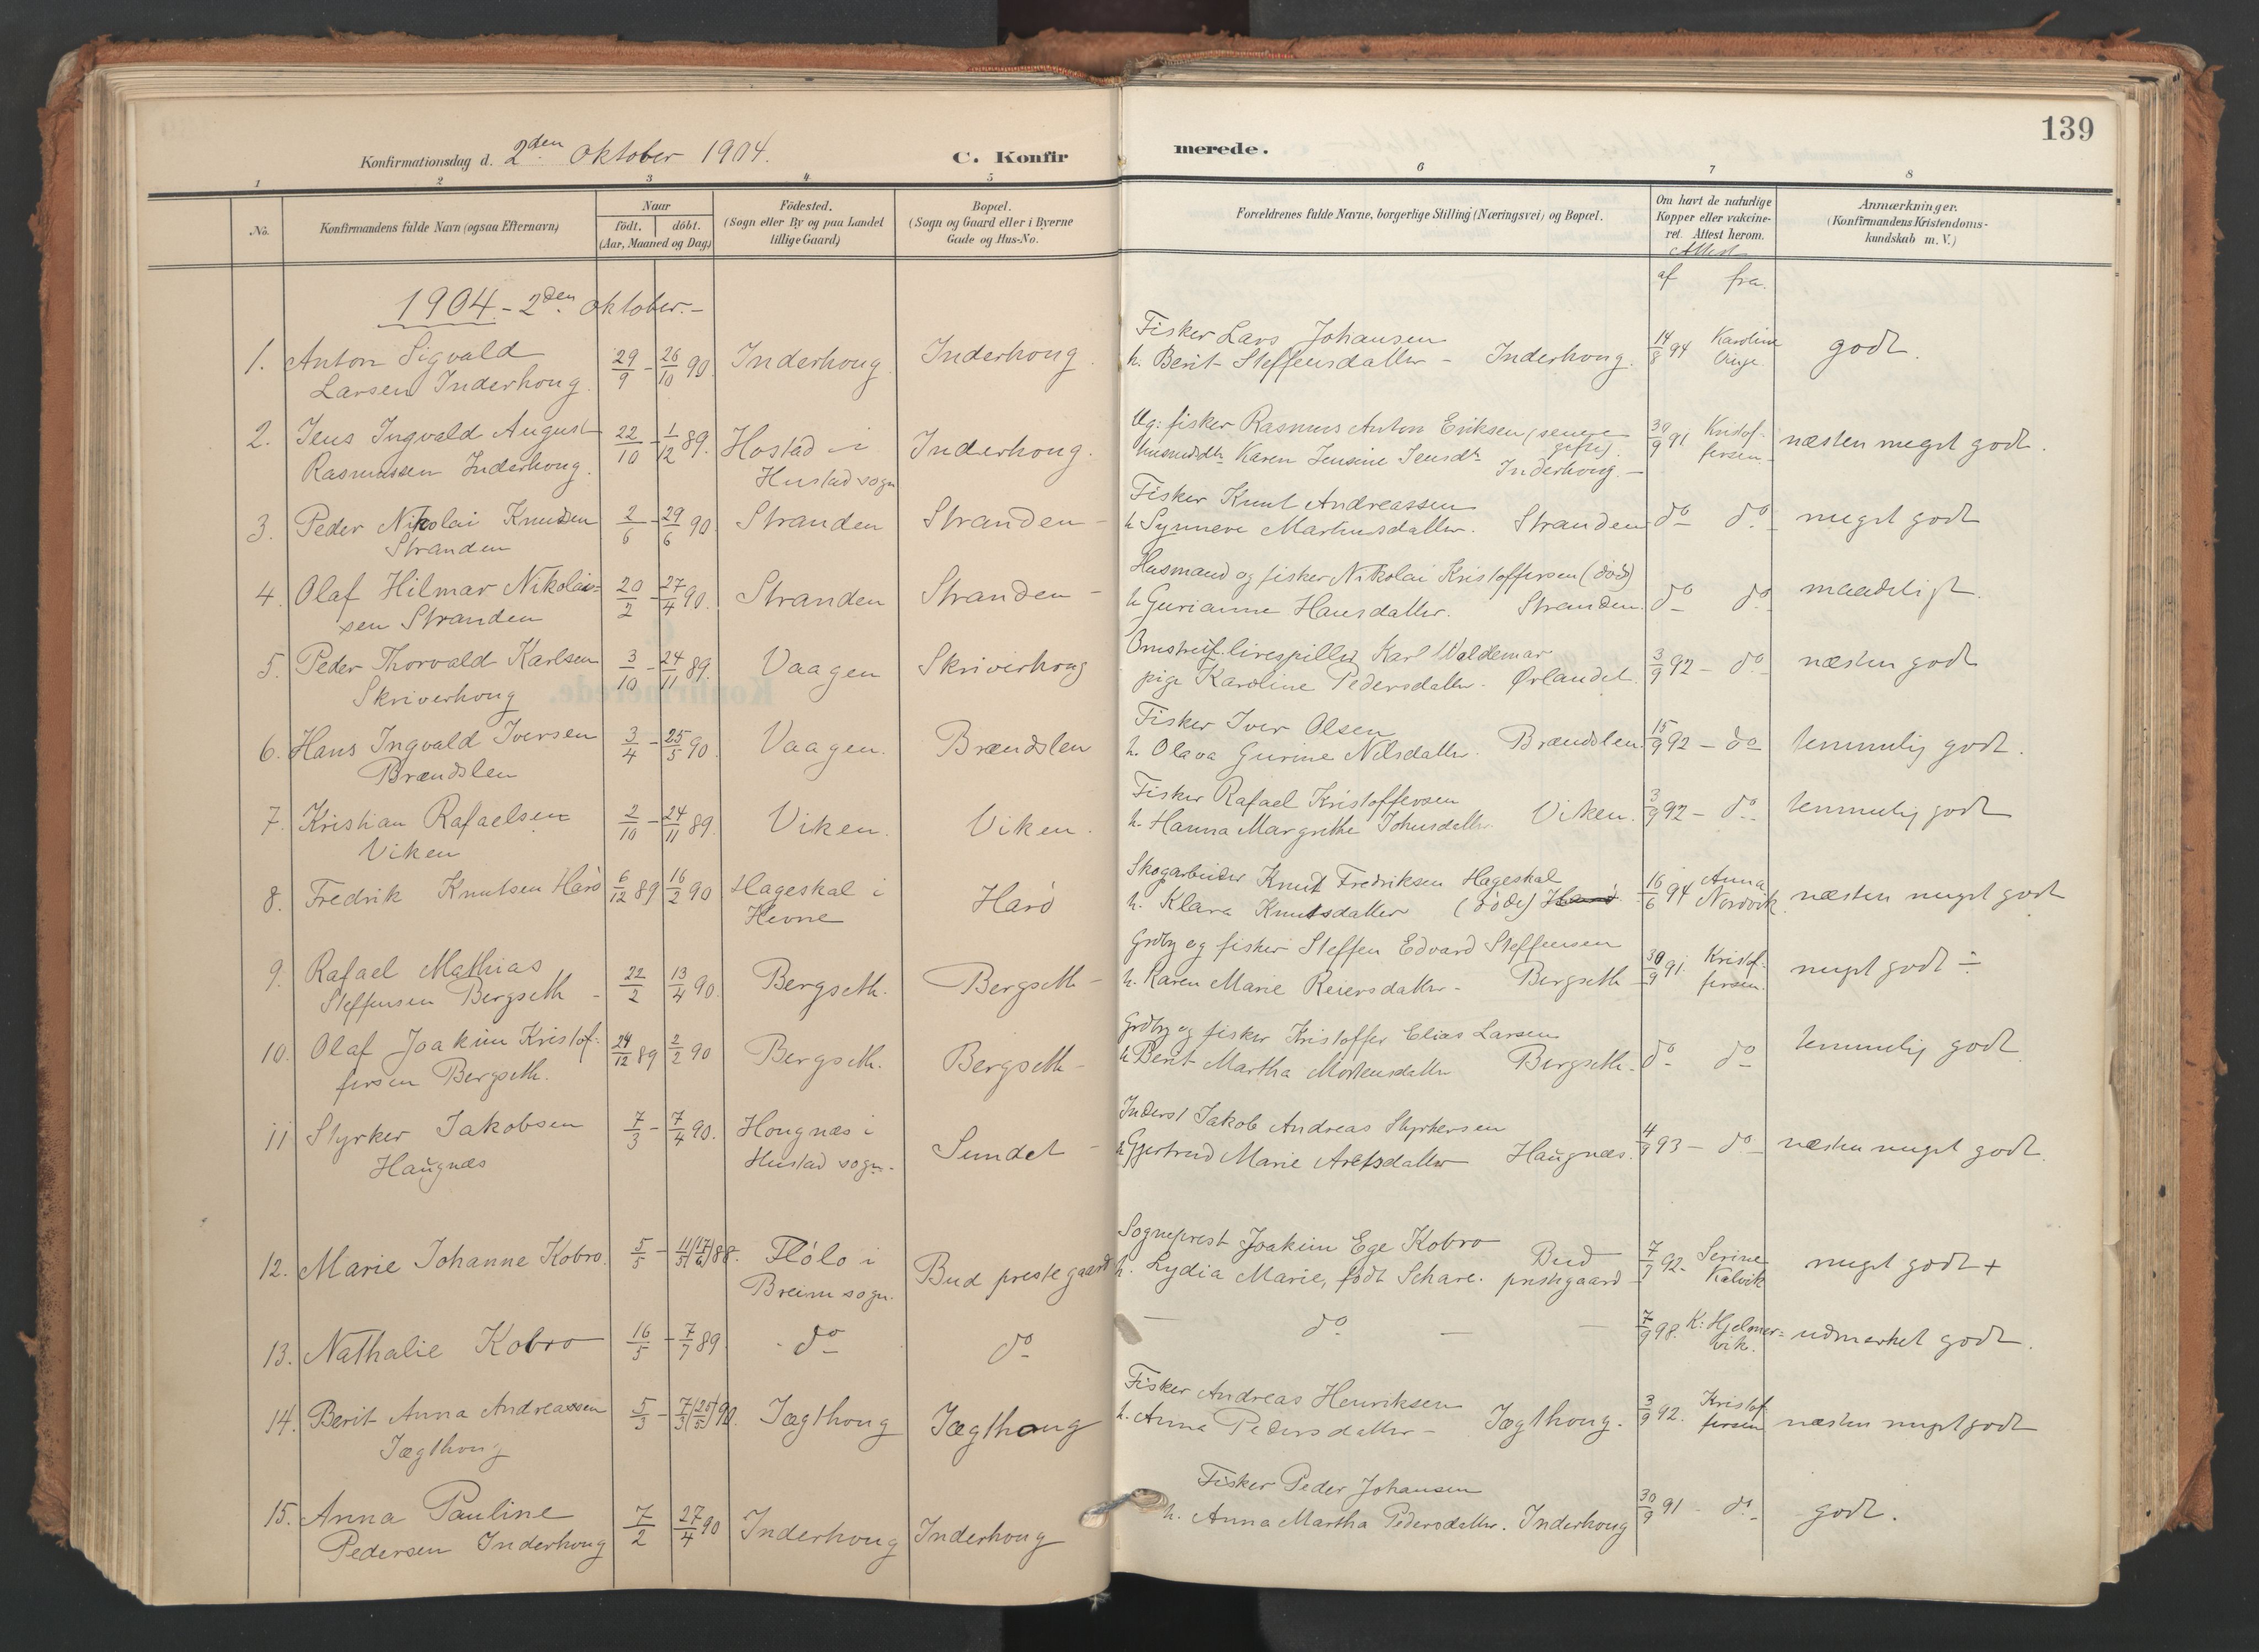 139
Konfirmationsdag d. 2den oktober 1904. C. Konfirmerede.
1 2 3 4 5 6 7 8
No. Konfirmandens fulde Navn (ogsaa Efternavn) Naar födt. döbt. (Aar, Maaned og Dag) Födested. (Sogn eller By og paa Landet tillige Gaard) Bopæl. (Sogn og Gaard eller i Byerne Gade og Hus-No. Forældrenes fulde Navne, borgerlige Stilling (Næringsvei) og Bopæl. Om havt de naturlige Kopper eller vakcineret. Attest herom. Anmærkninger. (Konfirmandens Kristendomskundskab m. V.)
Attest
af fra.
1904 - 2den oktober.-
1. Anton Sigvald 29/9 - 26/10 90. Inderhoug. Inderhoug. Fisker Lars Johansen 14/8 94 Karoline godt.
Larsen Inderhoug. h. Berit Steffensdatter - Inderhoug.
2. Jens Ingvald August 22/10 - 1/12 89. Hostad i Inderhoug. Ug: fisker Rasmus Anton Eriksen (senere gift). 30/9 91 Kristoffersen næsten meget godt.
Rasmussen Inderhoug. Hustad sogn Karen Jensine Jensdtr Inderhoug.-
3. Peder Nikolai Knudsen 2/6 - 29/6 90. Stranden Stranden - Fisker Knut Andreassen do do meget godt
Stranden h Synneve Martinusdatter. Stranden
4. Olaf Hilmar Nikolai- 20/2 - 27/4 90. Stranden Stranden - Husmand og fisker Nikolai Kristoffersen (död) do do maadeligt.
sen Stranden h Gurianne Hansdatter. Stranden.
5. Peder Thorvald Karlsen 3/10 - 24/11 89. Vaagen Skriverhoug Omstreif. lirespiller Karl Waldemar 3/9 92 - do næsten godt
Skriverhoug pige Karoline Pedersdatter. Ørlandet.
6. Hans Ingvald Iversen 3/4 - 25/5 90. Vaagen. Brændslen Fisker Iver Olsen 15/9 92 - do temmelig godt.
Brændslen h. Olava Gurine Nilsdatter. Brændslen.
7. Kristian Rafaelsen 2/10 - 24/11 89. Viken. Viken. Fisker Rafael Kristoffersen 3/9 92 - do. temmelig godt
Viken h. Hanna Margrethe Johnsdatter. Viken.
8. Fredrik Knutsen Harö 6/12 89 16/2 90 Hageskal i Harö Skogarbeider Knut Fredriksen Hageskal 16/6 94 Anna Nordvik næsten meget godt
Hevne h. Klara Knutsdatter (döde)
9. Rafael Mathias 22/2 13/4 90. Bergseth. Bergseth - Grdbr og fisker Steffen Edvard Steffensen 30/9 91. Kristoffersen. meget godt ÷
Steffensen Bergseth - h. Karen Marie Reiersdatter - Bergseth
10. Olaf Joakim Kristof- 24/12 89 2/2 90 Bergseth. Bergseth - Grdbr og fisker Kristoffer Elias Larsen do do temmelig godt
fersen Bergseth. h Berit Martha Mortensdatter Bergseth.
11 Styrker Jakobsen 7/3 - 7/4 90. Hougnæs i Sundet - Inderst Jakob Andreas Styrkersen 4/9 93 - do næsten meget godt.
Haugnæs Hustad sogn. h Gjertrud Marie Arefsdatter Haugnæs.
12. Marie Johanne Kobro. 5/5 - 11/5 (17/6) 88. Flölo i Bud prestegaard Sogneprest Joakim Ege Kobro Bud 7/7 92. Serine Kalvik meget godt +
Breim sogn. h. Lydia Marie, födt Schare. prestegaard
13. Nathalie Kobro 16/5 - 7/7 89 do do - do - - 7/9 98. K. Hjelmervik. udmerket godt.
14. Berit Anna Andreassen 5/3 - 7/3 (25/5) 90. Jægthoug Jægthoug Fisker Andreas Henriksen 3/9 92. Kristoffersen næsten meget godt
Jægthoug h. Anna Pedersdatter - Jægthoug.
15. Anna Pauline 7/2 27/4 90 Inderhoug Inderhoug Fisker Peder Johansen 30/9 91 - do godt.
Pedersen Inderhoug h. Anna Martha Pedersdatter. Inderhoug